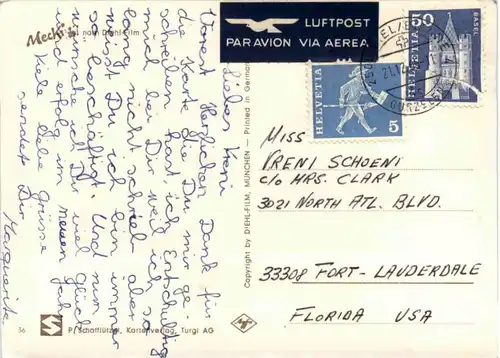 Mecki
nach Diehl-Film
Liebes Vreni
Vorest Herzlichen Dank für
die Karte die Du mir ge-
schrieben hast. Entschuldig
mich das ich Dir weil ich so
lang nicht schrieb aber Du
musst Du ich bin immer
beschäftigt. Und nun
wünsche ich Dir viel Glück
und erfolg im neuen Jahr
viele liebe Grüsse
sendet Dir
Marguerite
36
P. Schafflützel, Kartenverlag, Turgi AG
Copyright by DIEHL-FILM, MÜNCHEN — Printed in Germany
LUFTPOST
PAR AVION VIA AEREA
HELVETIA
5
HELVETIA
50
BASEL
GURZELEN
MISS
VRENI SCHOENI
C/O MRS. CLARK
3021 NORTH ATL. BLVD.
33308 FORT-LAUDERDALE
FLORIDA USA
AGFA